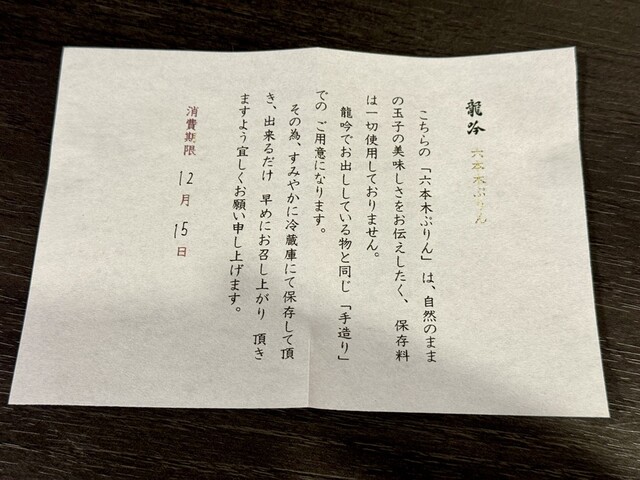 龍吟 六本木ぷりん
こちらの「六本木ぷりん」は、自然のまま
の玉子の美味しさをお伝えしたく、保存料
は一切使用しておりません。
龍吟でお出ししている物と同じ「手造り」
での ご用意になります。
その為、すみやかに冷蔵庫にて保存して頂
き、出来るだけ 早めにお召し上がり 頂き
ますよう宜しくお願い申し上げます。
消費期限 12月 15日